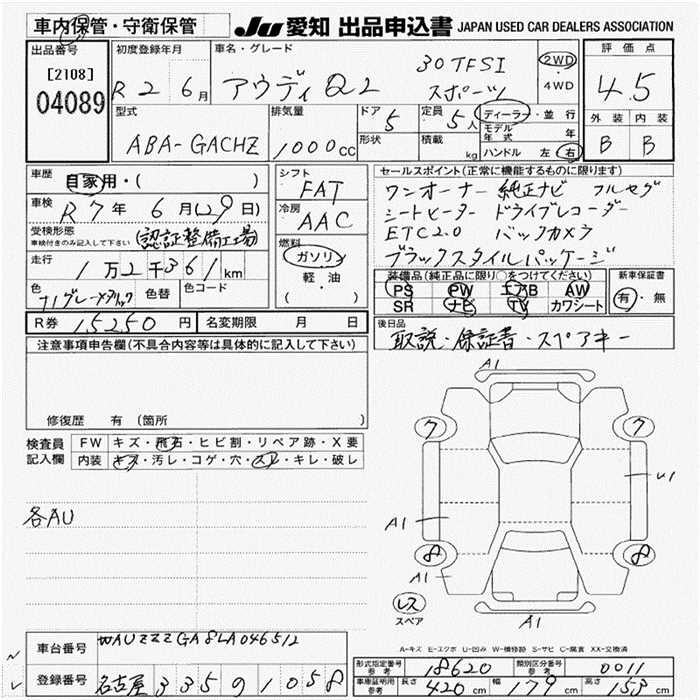 車内保管・守衛保管
JU 愛知 出品申込書 JAPAN USED CAR DEALERS ASSOCIATION
出品番号
[2108]
04089
初度登録年月
R2 6月
車名・グレード
アウディ Q2
30TFSI
スポーツ
2WD
・
4WD
評価点
4.5
外装 内装
B B
型式
ABA-GACHZ
排気量
1000cc
ドア 5
形状
定員 5人
積載 kg
ディーラー・並行
モデル年式 年
ハンドル 左 右
車歴
自家用・( )
車検 R7年 6月(29日)
受検形態
車検付きのみ記入して下さい
(認証整備工場)
走行 1万2千361km
色 ナノグレーメタリック 色替 色コード
R券 15250円 名変期限 月 日
シフト
FAT
冷房
AAC
燃料
ガソリン
軽・油
( )
セールスポイント(正常に機能するものに限ります)
ワンオーナー 純正ナビ フルセグ
シートヒーター ドライブレコーダー
ETC2.0 バックカメラ
ブラックスタイルパッケージ
装備品(純正品に限り○をつけてください)
PS PW エアB AW
SR ナビ TV カワシート
新車保証書
有・無
後日品
取説・保証書・スペアキー
注意事項申告欄(不具合内容等は具体的に記入して下さい)
修復歴 有 (箇所 )
検査員記入欄
FW キズ・飛石・ヒビ割・リペア跡・X要
内装 キズ・汚レ・コゲ・穴・スレ・キレ・破レ
各AU
A1
7 7
U1
A1
8 8
A1
レス
スペア
A1
A-キズ E-エクボ U-凹み W-補修跡 S-サビ C-腐食 XX-交換済
車台番号 WAUZZZGA8LA046512
登録番号 名古屋 335 の 1058
形式指定番号 参考 18620 類別区分番号 参考 0011
車庫証明用 参考 長さ 420cm 幅 179cm 高さ 153cm